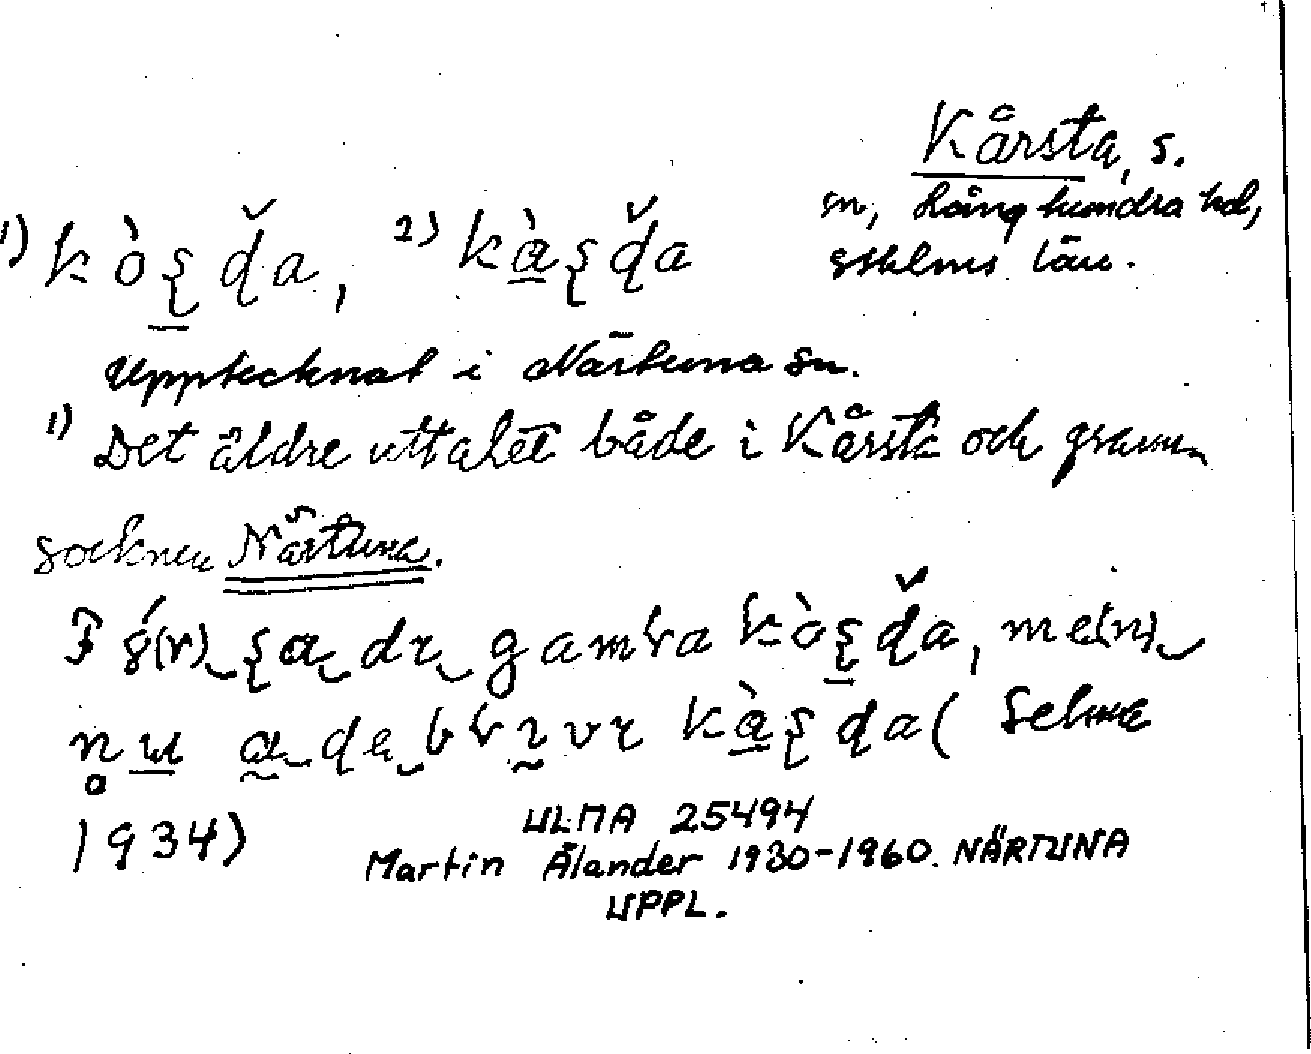 Kårsta, s.
sn, Långhundra hd,
sthlms län.
1) kòʂɖa, 2) kàʂɖa
Upptecknat i Närtuna sn.
1) Det äldre uttalet både i Kårsta och grann-
socknen Närtuna.
gamɽa kòʂɖa, me(n)
nu kàʂɖa (Selma
1934)
ULMA 25494
Martin Ålander 1930-1960. NÄRTUNA
UPPL.